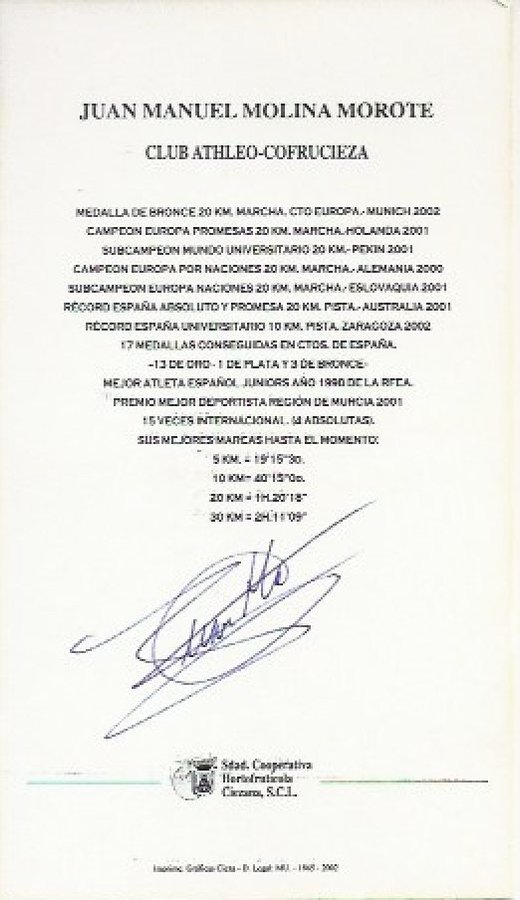 JUAN MANUEL MOLINA MOROTE
CLUB ATHLEO-COFRUCIEZA
MEDALLA DE BRONCE 20 KM. MARCHA. CTO EUROPA.- MUNICH 2002
CAMPEON EUROPA PROMESAS 20 KM. MARCHA.-HOLANDA 2001
SUBCAMPEON MUNDO UNIVERSITARIO 20 KM.- PEKIN 2001
CAMPEON EUROPA POR NACIONES 20 KM. MARCHA.- ALEMANIA 2000
SUBCAMPEON EUROPA NACIONES 20 KM. MARCHA.- ESLOVAQUIA 2001
RÉCORD ESPAÑA ABSOLUTO Y PROMESA 20 KM. PISTA.- AUSTRALIA 2001
RÉCORD ESPAÑA UNIVERSITARIO 10 KM. PISTA. ZARAGOZA 2002
17 MEDALLAS CONSEGUIDAS EN CTOS. DE ESPAÑA.
-13 DE ORO- 1 DE PLATA Y 3 DE BRONCE-
MEJOR ATLETA ESPAÑOL JUNIORS AÑO 1998 DE LA RFEA.
PREMIO MEJOR DEPORTISTA REGIÓN DE MURCIA 2001
15 VECES INTERNACIONAL. (4 ABSOLUTAS).
SUS MEJORES MARCAS HASTA EL MOMENTO:
5 KM. = 19'15"30.
10 KM= 40'15"00.
20 KM = 1H.20'18"
30 KM = 2H.11'09"
Juan Mo
Sdad. Cooperativa
Hortofruticola
Ciezana, S.C.L.
Imprime: Gráficas Cieza - D. Legal: MU. - 1565 - 2002